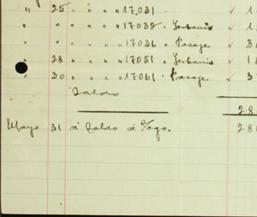 " 25 " " " " 17.031 1
" " " " " 17032 " Serbanio 1
" " " " 17036 " Pasaje 3
" 28 " " " " 17051 " Serbanio 18
" 30 " " " " 17061 " Pasaje 3
Saldo
28
Mayo 31 á Saldo á c/ago. 28